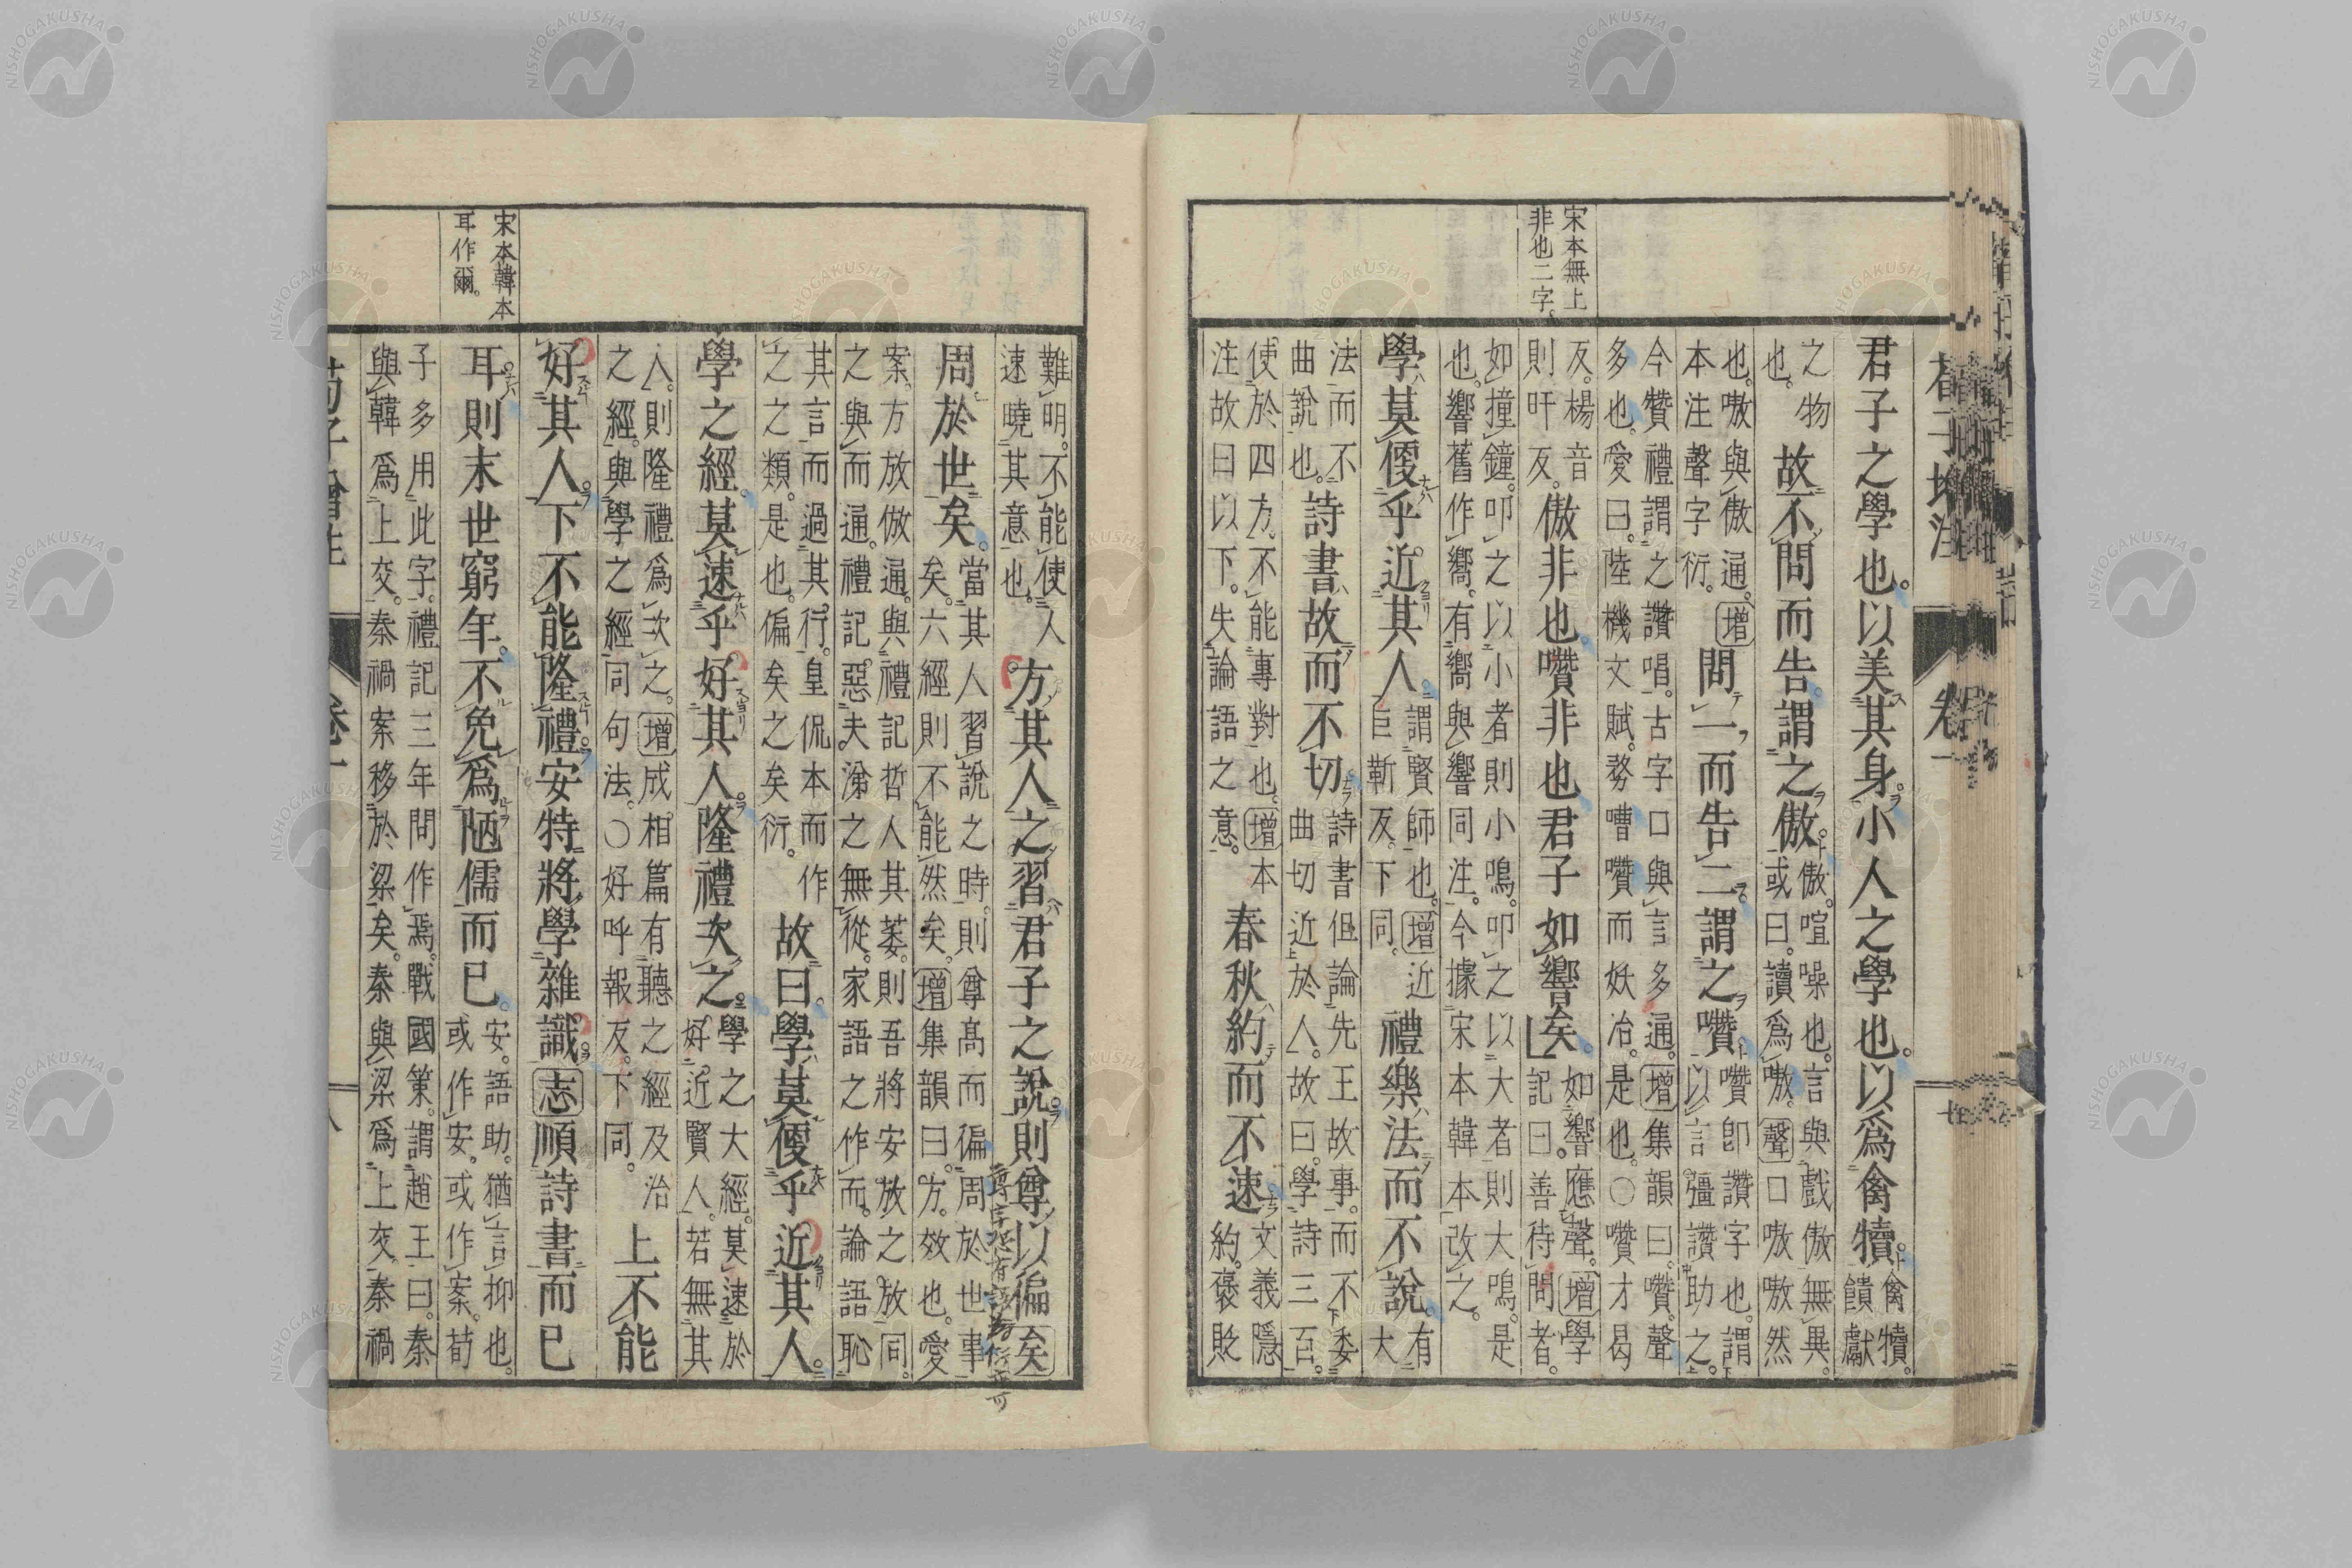 宋本無上
非也二字。
君子之學也。以美其身。小人之學也。以爲禽犢。禽犢。饋獻
之物也。故不問而告。謂之傲。傲。喧噪也。言與戲傲無異。或曰。讀爲嗷。聲口嗷嗷然
也。嗷與傲通。本注聲字衍。增問一而告二。謂之囋。囋卽讚字也。謂以言彊讚助之。
今贊禮謂之讚唱。古字口與言多通。增集韻曰。囋。聲多也。愛曰。陸機文賦。務嘈囋而妖冶。是也。○囋才曷
反。楊音則旰反。傲非也。囋非也。君子如響矣。如響應聲。增學記曰。善待問者。
如撞鐘。叩之以小者則小鳴。叩之以大者則大鳴。是也。響舊作嚮。有嚮與響同注。今據宋本韓本改之。
學莫便乎近其人。謂賢師也。增近巨靳反。下同。禮樂法而不說。有大
法而不曲說也。詩書故而不切。詩書但論先王故事。而不委曲切近於人。故曰。學詩三百。
使於四方。不能專對也。增本注故曰以下。失論語之意。春秋約而不速。文義隱約。褒貶
難明。不能使人速曉其意也。方其人之習君子之說。則尊以徧矣
周於世矣。當其人習說之時。則尊高而徧周於世事矣。六經則不能然矣。增集韻曰。方。效也。愛
案。方放倣通。與禮記哲人其萎。則吾將安放之放同。之與而通。禮記。惡夫涕之無從。家語之作而。論語恥
其言而過其行。皇侃本而作之之類。是也。偏矣之矣衍。故曰。學莫便乎近其人。
學之經。莫速乎好其人。隆禮次之。學之大經。莫速於好近賢人。若無其
人。則隆禮爲次之。增成相篇有聽之經及治之經。與學之經同句法。○好呼報反。下同。上不能
好其人。下不能隆禮。安特將學雜識志順詩書而已
耳。則末世窮年。不免爲陋儒而已。安。語助。猶言抑也。或作安。或作案。荀
子多用此字。禮記三年問作焉。戰國策。謂趙王曰。秦與韓爲上交。秦禍案移於梁矣。秦與梁爲上交。秦禍
宋本韓本
耳作爾。